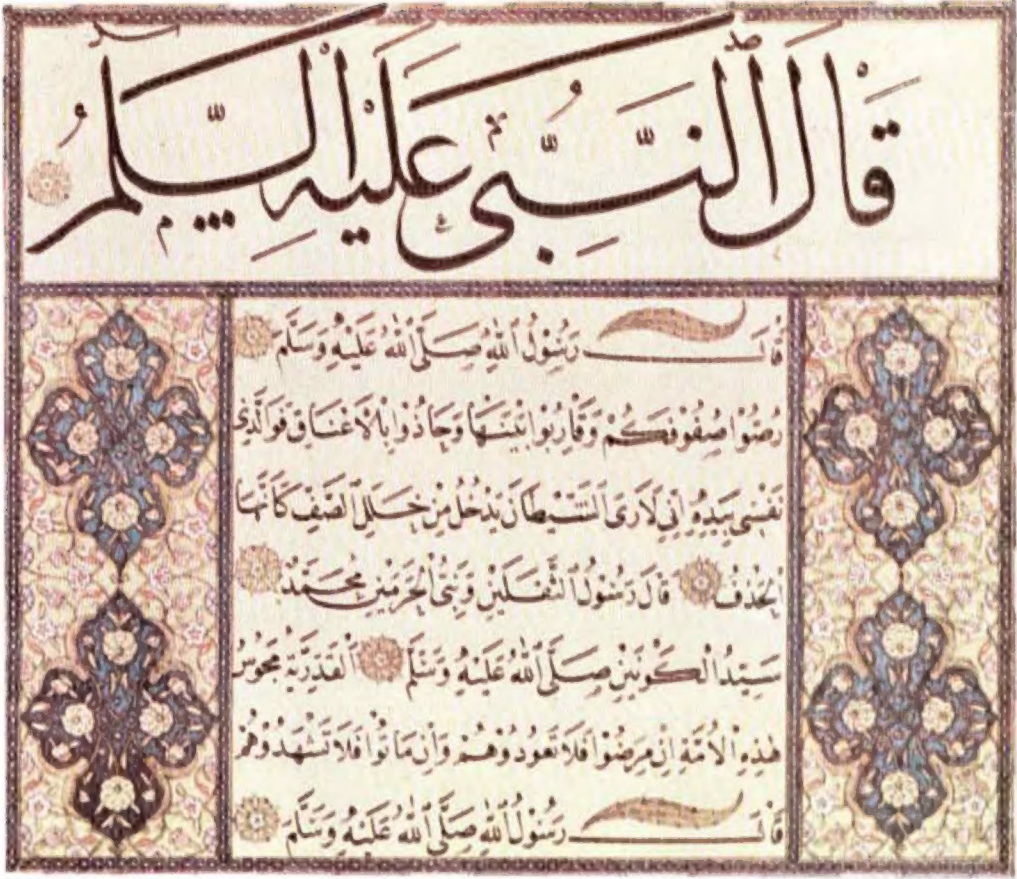 قَالَ النَّبِيُّ عَلَيْهِ السَّلَامُ
قَالَ رَسُولُ اللهِ صَلَّى اللهُ عَلَيْهِ وَسَلَّمَ
رُصُّوا صُفُوفَكُمْ وَقَارِبُوا بَيْنَهَا وَحَاذُوا بِالْاَعْنَاقِ فَوَالَّذِي
نَفْسِي بِيَدِهِ اِنِّي لَاَرَى الشَّيْطَانَ يَدْخُلُ مِنْ خَلَلِ الصَّفِّ كَاَنَّهَا
الْحَذَفُ قَالَ رَسُولُ الثَّقَلَيْنِ وَنَبِيُّ الْحَرَمَيْنِ مُحَمَّدٌ
سَيِّدُ الْكَوْنَيْنِ صَلَّى اللهُ عَلَيْهِ وَسَلَّمَ اَلْقَدَرِيَّةُ مَجُوسُ
هٰذِهِ الْاُمَّةِ اِنْ مَرِضُوا فَلَا تَعُودُوهُمْ وَاِنْ مَاتُوا فَلَا تَشْهَدُوهُمْ
قَالَ رَسُولُ اللهِ صَلَّى اللهُ عَلَيْهِ وَسَلَّمَ